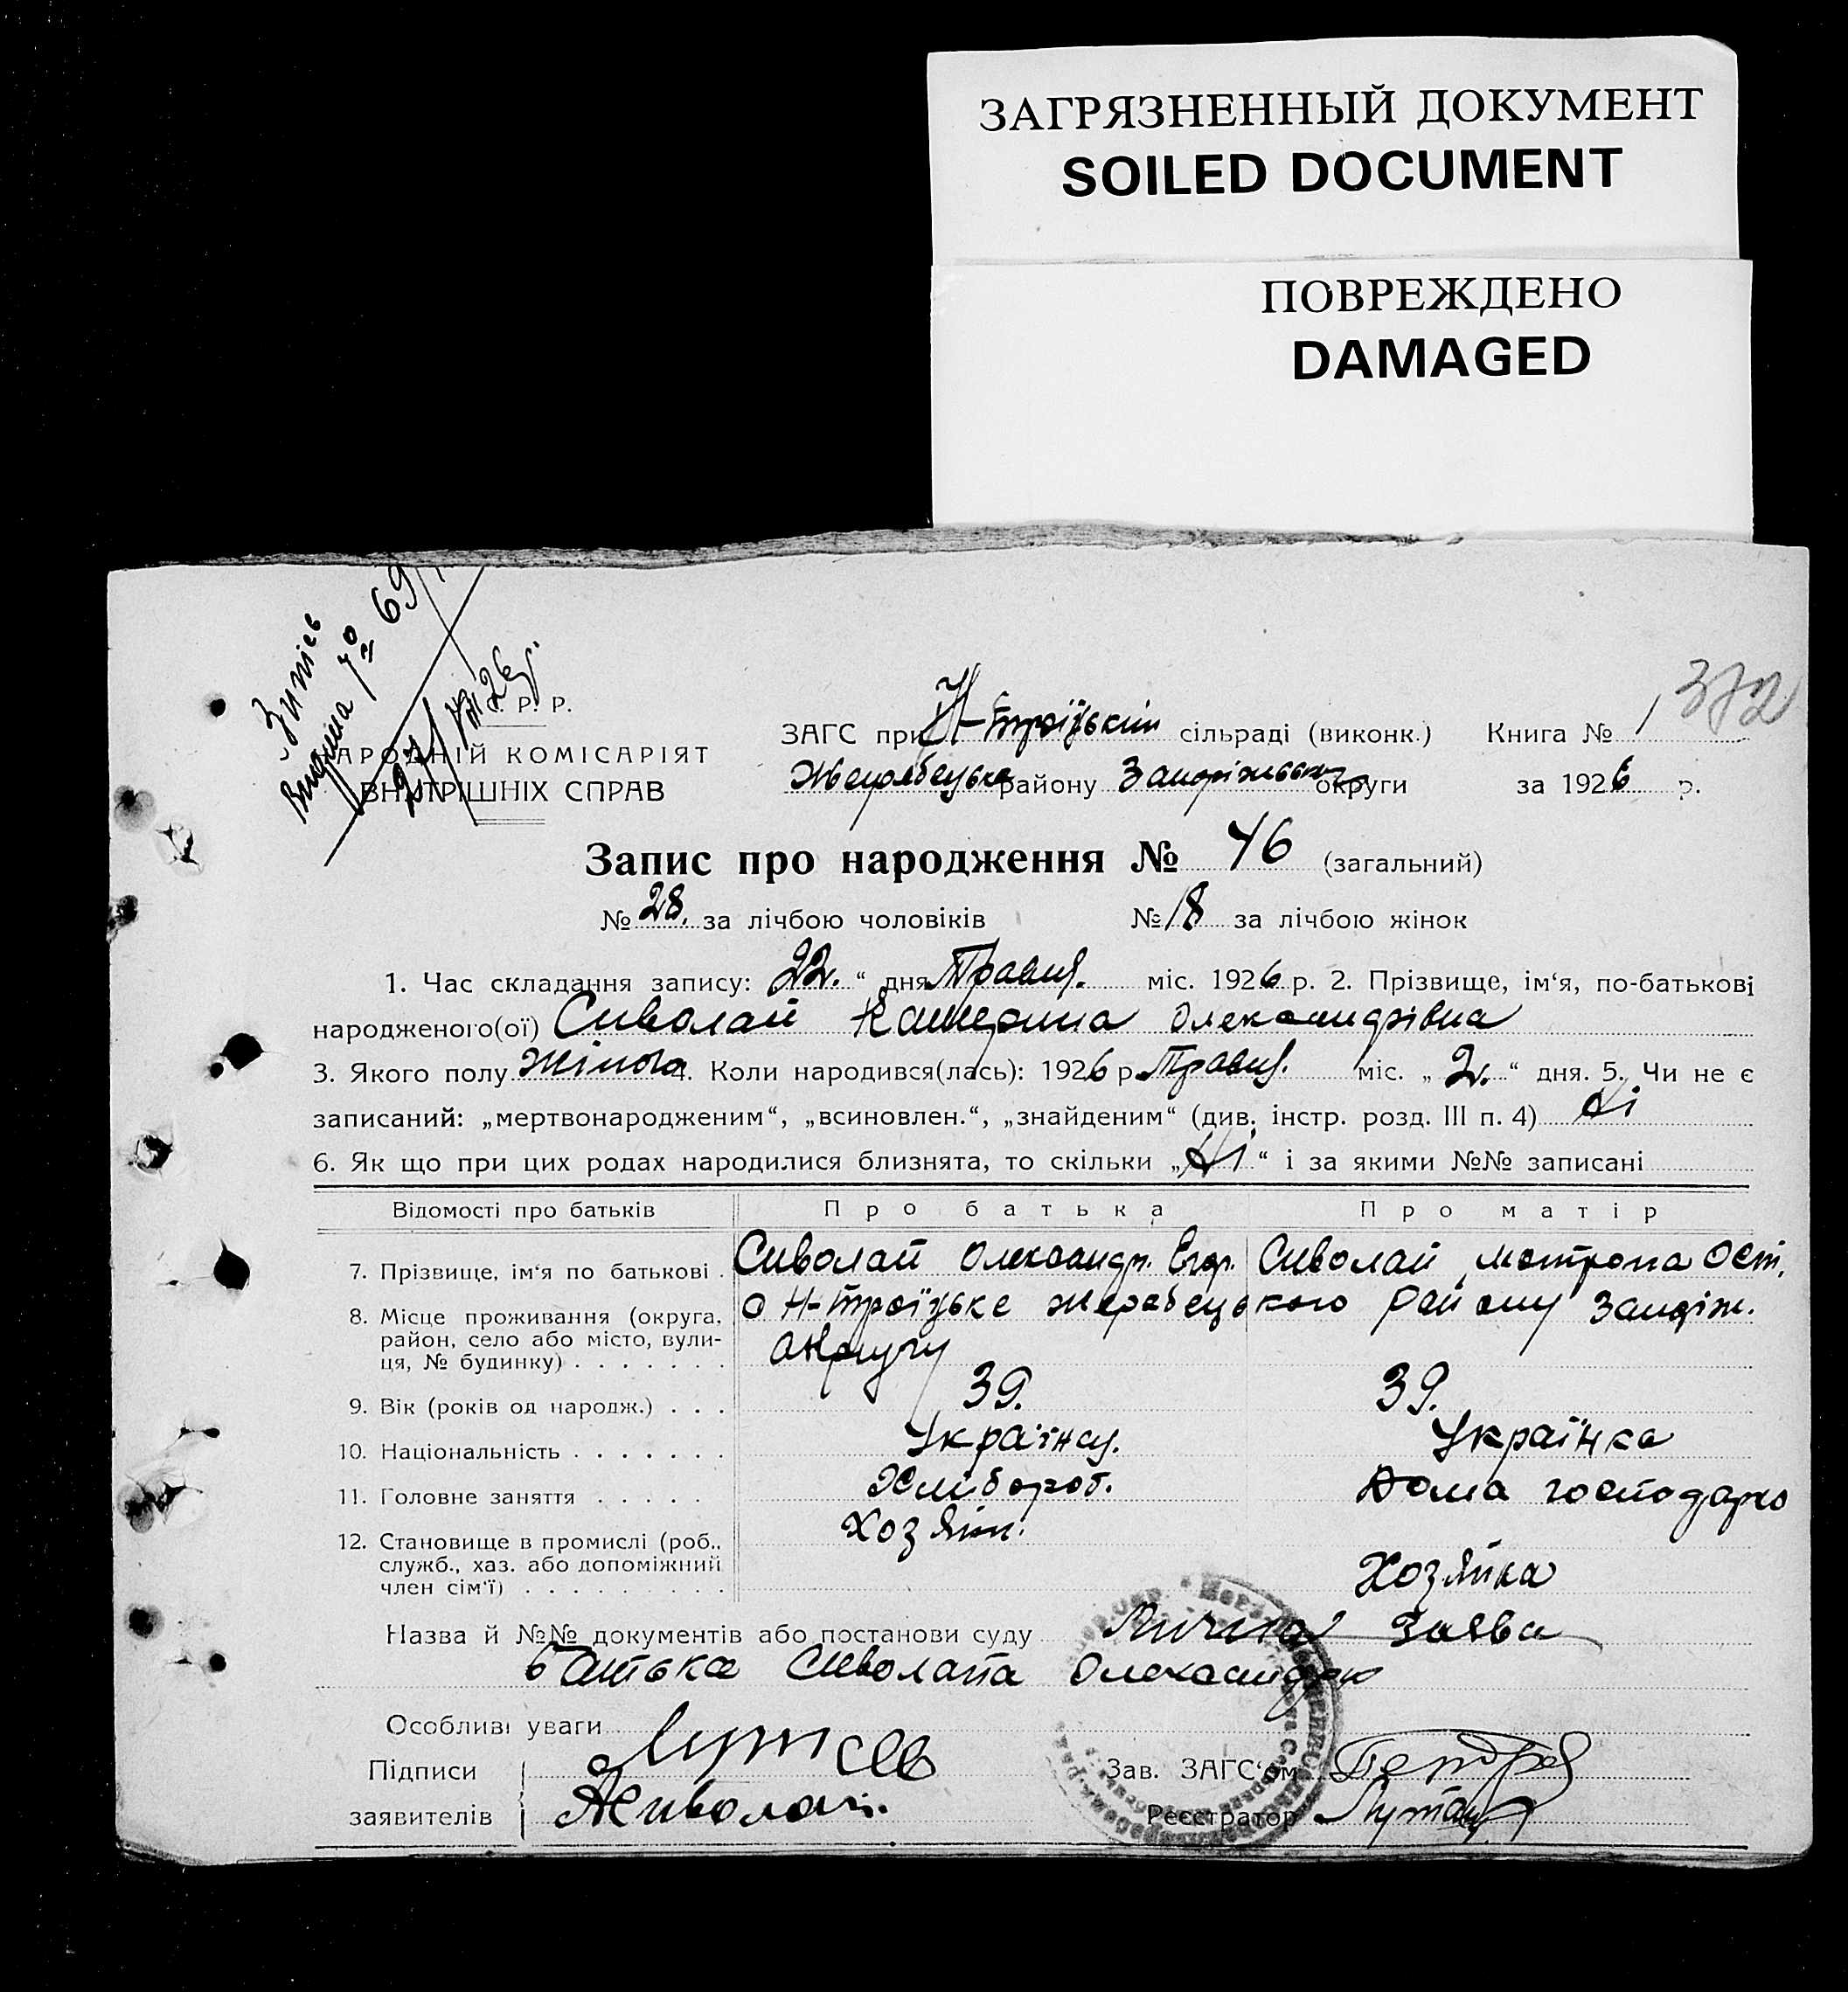 ЗАГРЯЗНЕННЫЙ ДОКУМЕНТ
SOILED DOCUMENT
ПОВРЕЖДЕНО
DAMAGED
69
372
Р. Р.
АРОДНІЙ КОМІСАРІЯТ
ВНУТРІШНІХ СПРАВ
ЗАГС при Н-Троїцькій сільраді (виконк.) Книга № 1
району округи за 1926 р.
Запис про народження № 46 (загальний)
№ 28. за лічбою чоловіків № 18 за лічбою жінок
1. Час складання запису: 22. “ дня Травня. міс. 1926 р. 2. Прізвище, ім‘я, по-батькові
народженого(ої) Сиволап Катерина Олександрівна
3. Якого полу Жіноча 4. Коли народився(лась): 1926 р. Травня. міс. „ 2. “ дня. 5. Чи не є
записаний: „мертвонародженим“, „всиновлен.“, „знайденим“ (див. інстр. розд. III п. 4) Ні
6. Як що при цих родах народилися близнята, то скільки „ Ні “ і за якими №№ записані
Відомості про батьків Про батька Про матір
7. Прізвище, ім‘я по батькові . Сиволап Олександр. Егор. Сиволап Мотрона Ост.
8. Місце проживання (округа, район, село або місто, вулиця, № будинку) . . . . . . . Н-Троїцьке Жеребецького Району Запоріж.
Округу
9. Вік (років од народж.) . . . 39. 39.
10. Національність . . . . . . . Українец. Українка
11. Головне заняття . . . . . Хлібороб. Дома господарю
12. Становище в промислі (роб., служб., хаз. або допоміжний член сім‘ї) . . . . . . . . . Хозяїн. Хозяйка
Назва й №№ документів або постанови суду Лична Заява
батька Сиволапа Олександра
Особливі уваги
Підписи Зав. ЗАГС‘ом
заявителів Реєстратор